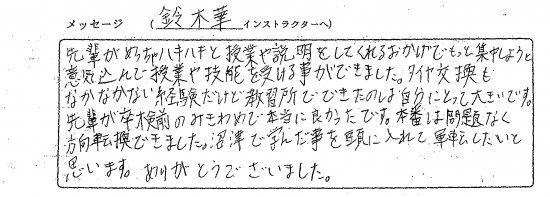 メッセージ (鈴木華インストラクターへ)
先輩がめっちゃハキハキと授業や説明をしてくれるおかげでもっと集中しようと
意気込んで授業や技能を受ける事ができました。タイヤ交換も
なかなかない経験だけど教習所でできたのは自分にとって大きいです。
先輩が卒検前のみきわめで本当に良かったです。本番は問題なく
方向転換できました。沼津で学んだ事を頭に入れて運転したいと
思います。ありがとうございました。